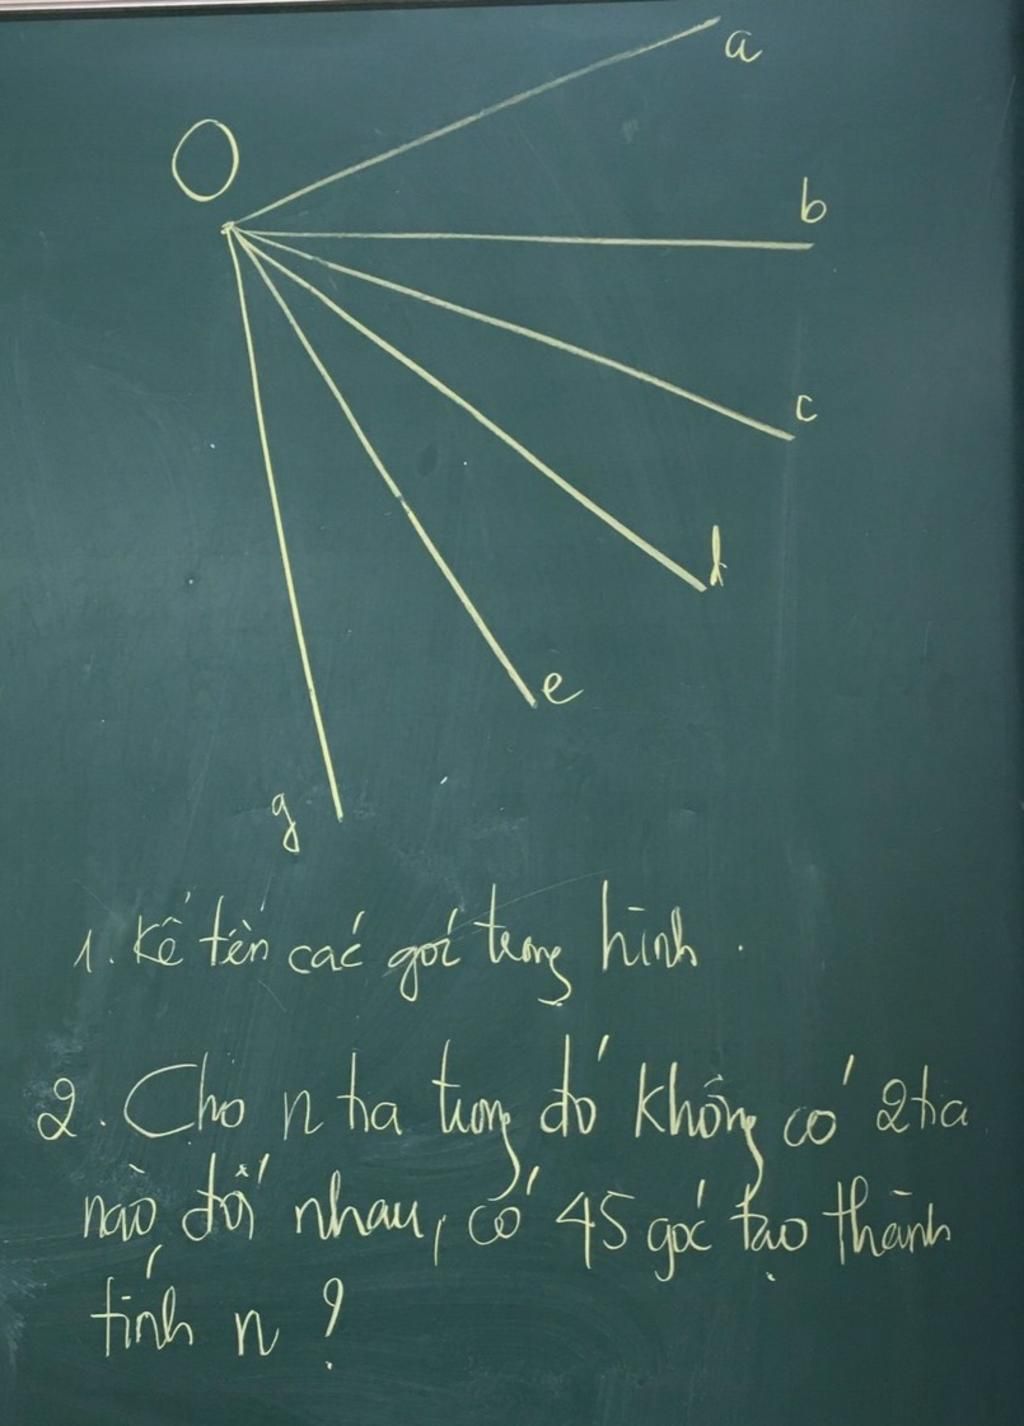 O
a
b
c
d
e
g
1. Kể tên các góc trong hình.
2. Cho n tia trong đó không có 2 tia
nào đối nhau, có 45 góc tạo thành
tính n ?